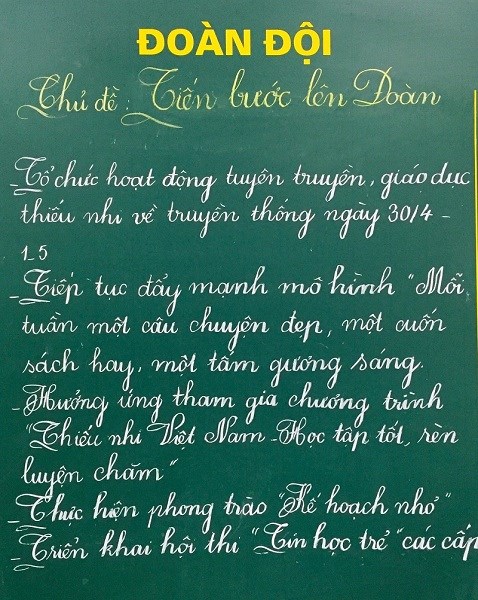 ĐOÀN ĐỘI
Chủ đề: Tiến bước lên Đoàn
-Tổ chức hoạt động tuyên truyền, giáo dục
thiếu nhi về truyền thống ngày 30/4 -
1_5
-Tiếp tục đẩy mạnh mô hình "Mỗi
tuần một câu chuyện đẹp, một cuốn
sách hay, một tấm gương sáng.
-Hưởng ứng tham gia chương trình
"Thiếu nhi Việt Nam -Học tập tốt, rèn
luyện chăm"
-Thực hiện phong trào "Kế hoạch nhỏ"
-Triển khai hội thi "Tin học trẻ" các cấp